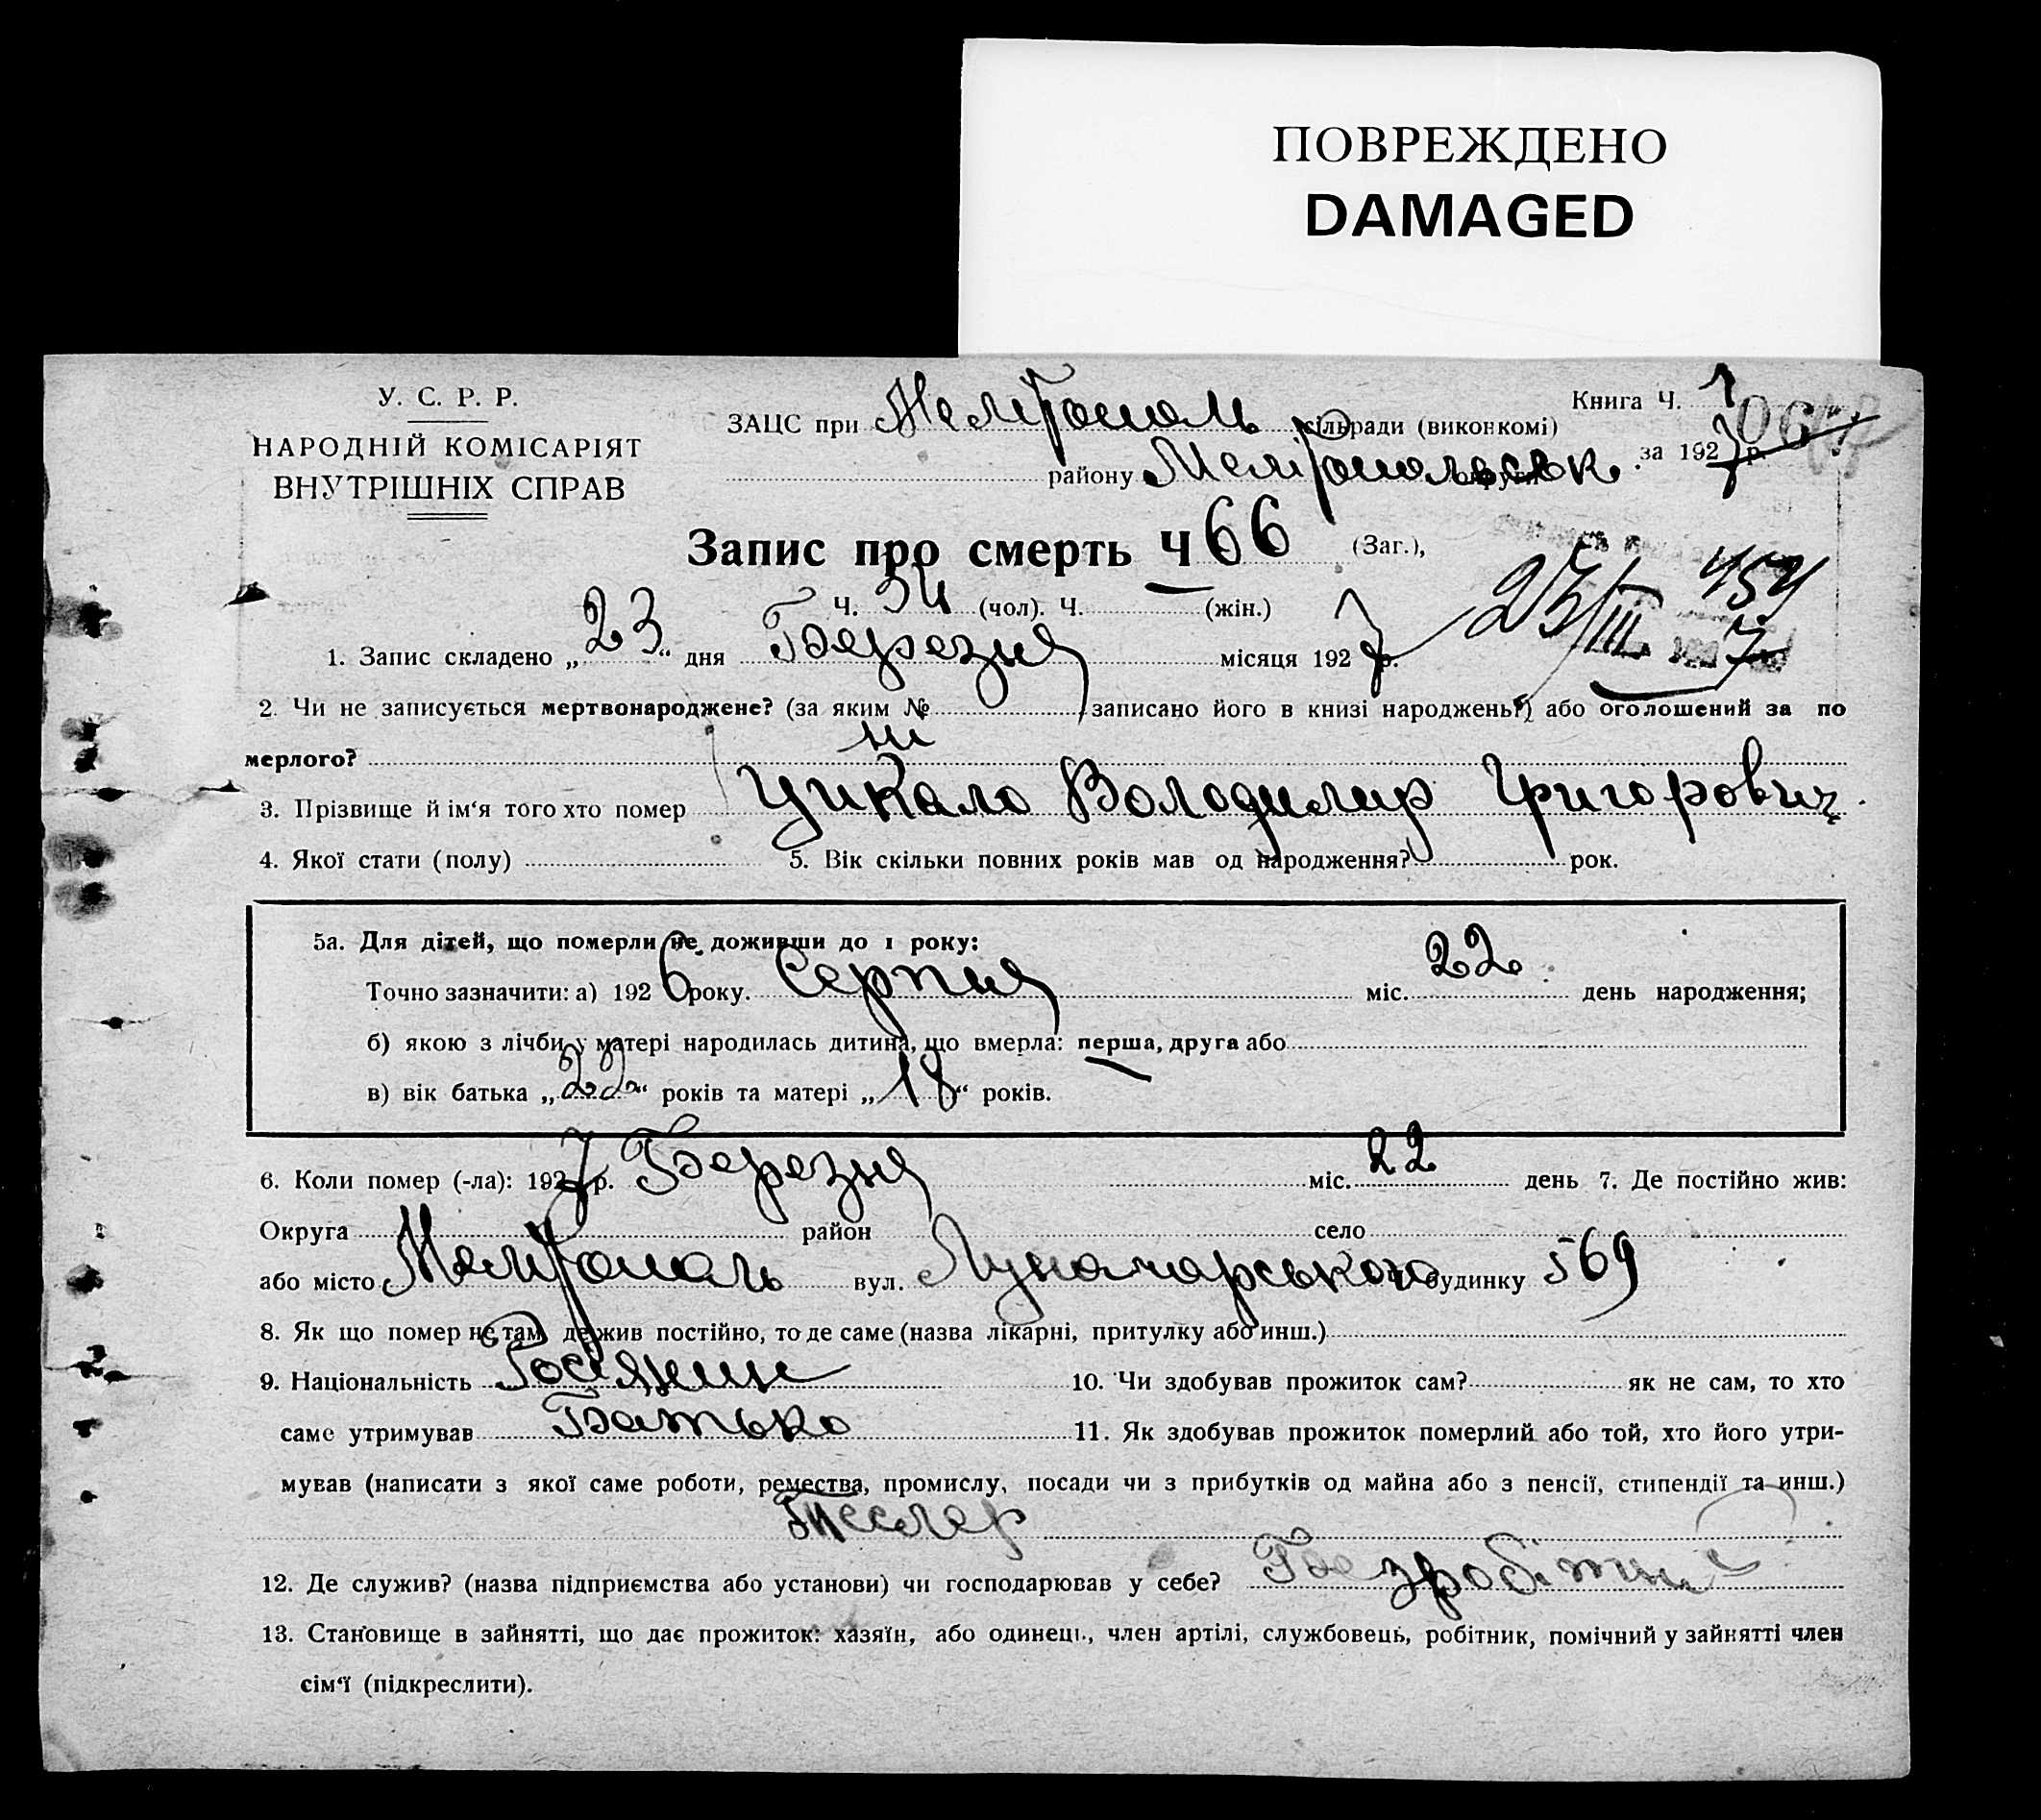 ПОВРЕЖДЕНО
DAMAGED
У. С. Р. Р.
НАРОДНІЙ КОМІСАРІЯТ
ВНУТРІШНІХ СПРАВ
Книга Ч. 1
ЗАЦС при Мелітополь сільради (виконкомі)
району Мелітопольськ округи за 1927 р.
Запис про смерть Ч 66 (Заг.),
Ч. 34 (чол). Ч. (жін.)
23/III 7
1. Запис складено „23“ дня Березня місяця 1927 р.
2. Чи не записується мертвонароджене? (за яким № записано його в книзі народжень?) або оголошений за по
мерлого? ні
3. Прізвище й ім‘я того хто помер Цикало Володимир Григорович.
4. Якої стати (полу) 5. Вік скільки повних років мав од народження? рок.
5а. Для дітей, що померли не доживши до 1 року:
Точно зазначити: а) 1926 року. Серпня міс. 22 день народження;
б) якою з лічби у матері народилась дитина, що вмерла: перша, друга або
в) вік батька „22“ років та матері „18“ років.
6. Коли помер (-ла): 1927 р. Березня міс. 22 день 7. Де постійно жив:
Округа район село
або місто Мелітополь вул. Луначарського будинку 569
8. Як що помер не там, де жив постійно, то де саме (назва лікарні, притулку або инш.)
9. Національність Росіянин 10. Чи здобував прожиток сам? як не сам, то хто
саме утримував Батько 11. Як здобував прожиток померлий або той, хто його утри-
мував (написати з якої саме роботи, ремества, промислу, посади чи з прибутків од майна або з пенсії, стипендії та инш.)
12. Де служив? (назва підприємства або установи) чи господарював у себе? Безробітний
13. Становище в зайнятті, що дає прожиток: хазяїн, або одинець, член артілі, службовець, робітник, помічний у зайнятті член
сім‘ї (підкреслити).